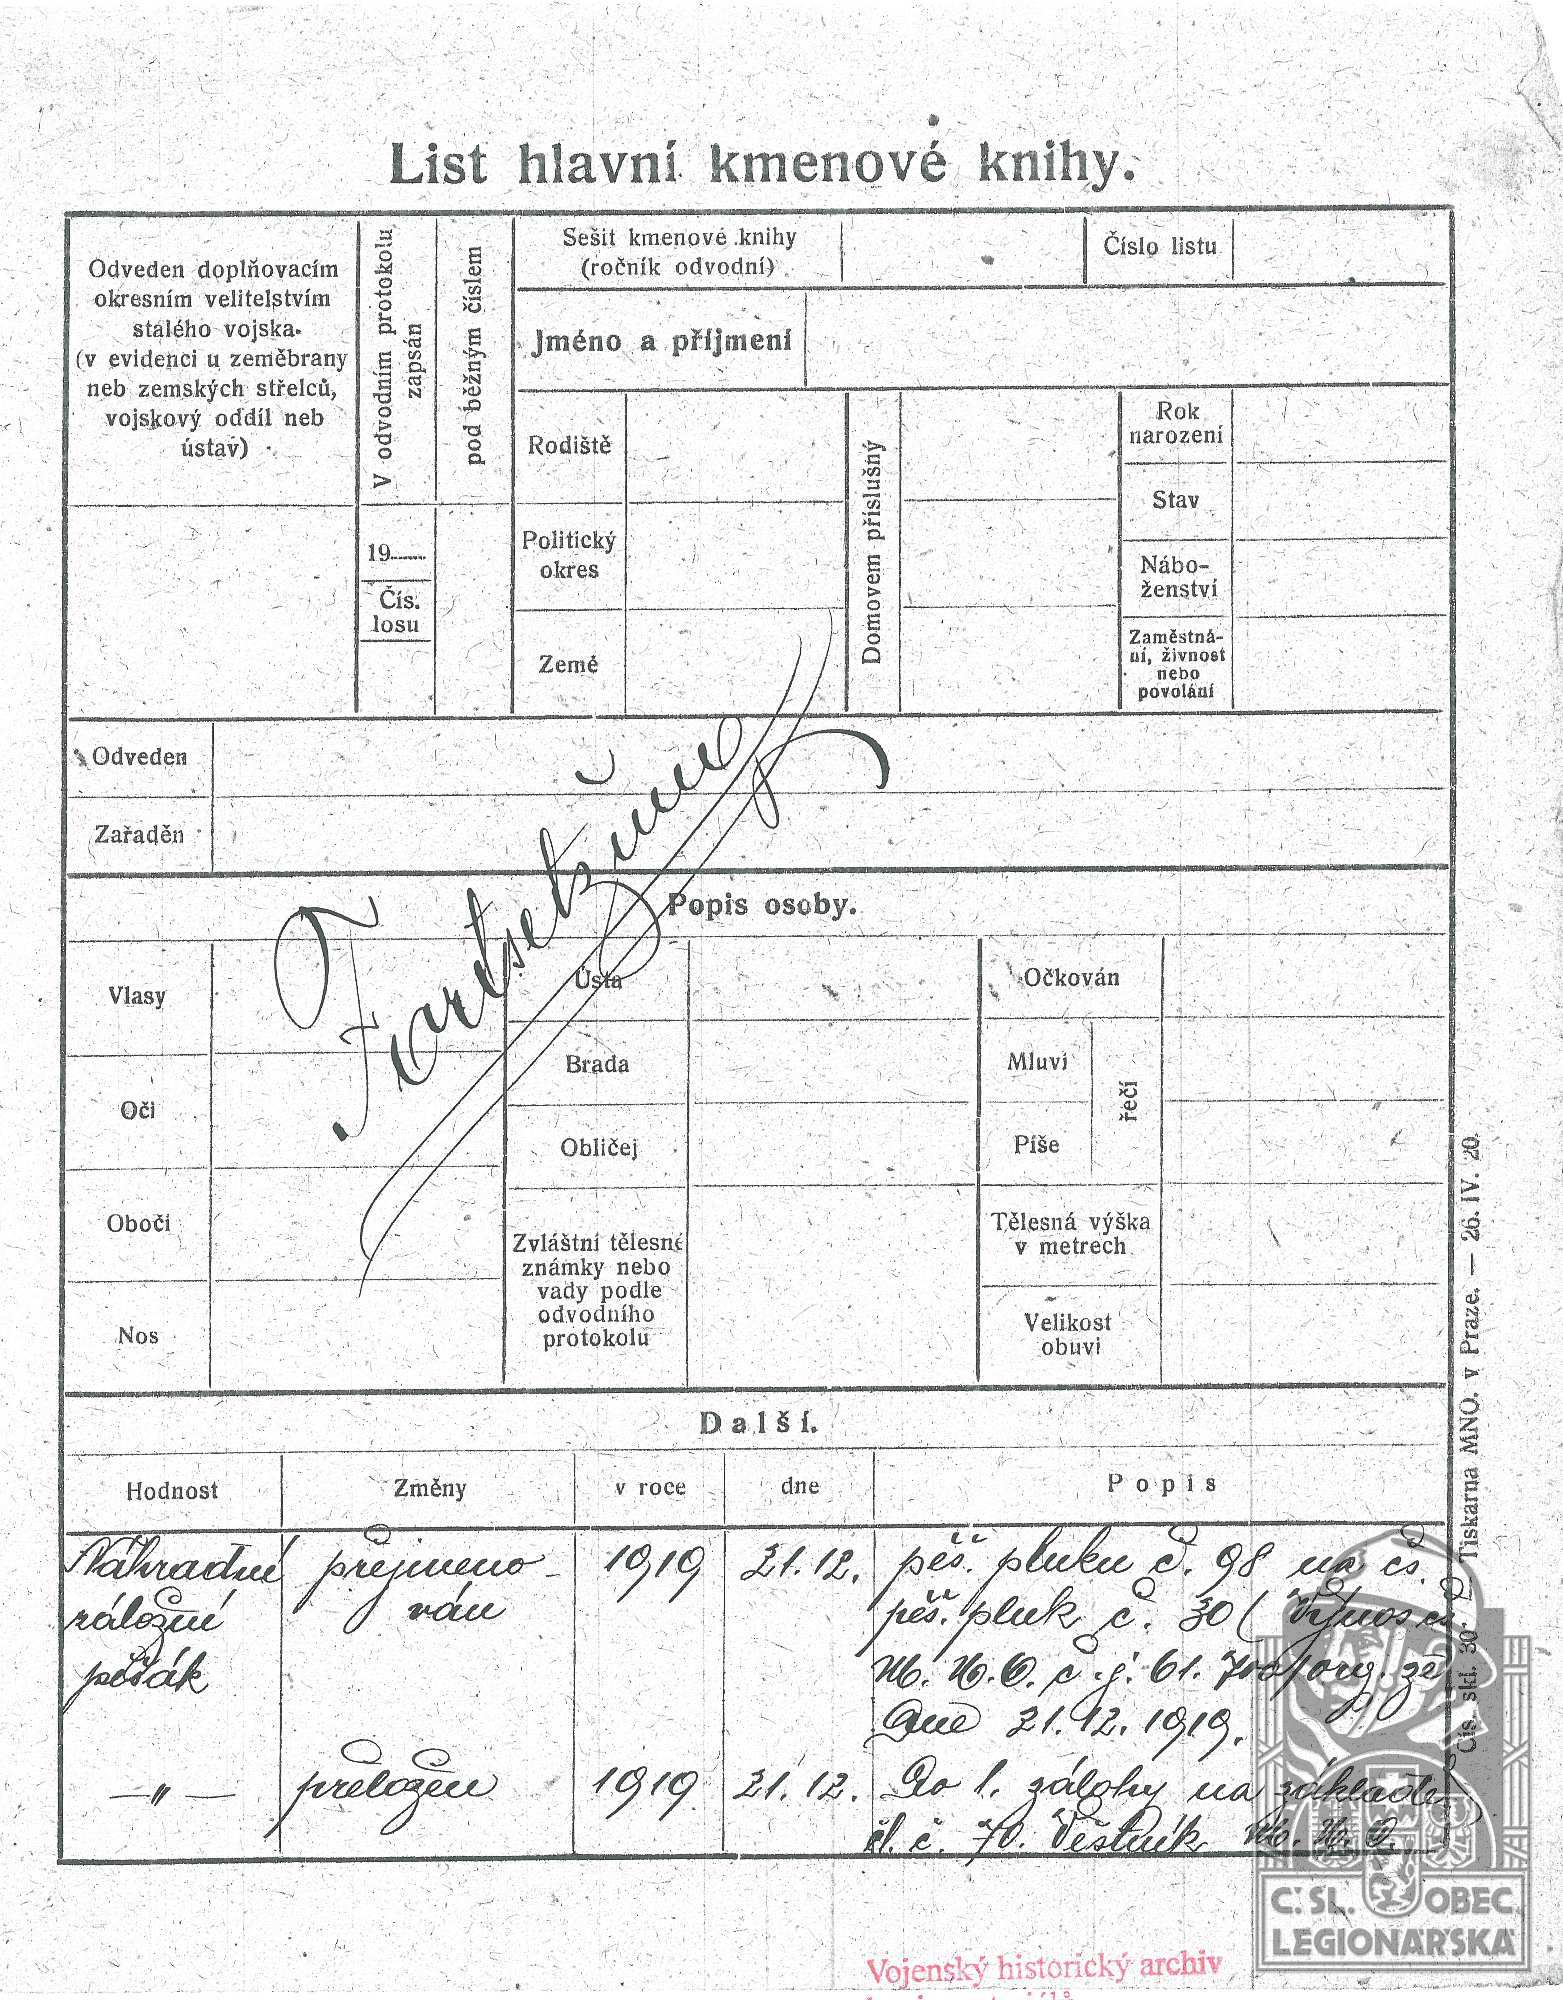 List hlavní kmenové knihy.
Odveden doplňovacím
okresním velitelstvím
stálého vojska
(v evidenci u zeměbrany
neb zemských střelců,
vojskový oddíl neb
ústav)
V odvodním protokolu
zapsán
pod běžným číslem
19......
Čís.
losu
Sešit kmenové knihy
(ročník odvodní)
Číslo listu
Jméno a příjmení
Rodiště
Politický
okres
Země
Domovem příslušný
Rok
narození
Stav
Nábo-
ženství
Zaměstná-
ní, živnost
nebo
povolání
Odveden
Zařaděn
Popis osoby.
Vlasy
Oči
Obočí
Nos
Ústa
Brada
Obličej
Zvláštní tělesné
známky nebo
vady podle
odvodního
protokolu
Očkován
Mluví
Píše
řečí
Tělesná výška
v metrech
Velikost
obuvi
Další.
Hodnost Změny v roce dne Popis
Náhradní přejmeno- 1919 21.12. pěš. pluku č. 98 na čs.
záložní ván pěš. pluk č. 30 (Výnos čs.
pěšák M. N. O. č. j. 61. 700/org. ze
Dne 21.12.1919.
—„— přeložen 1919 21.12. Do 1. zálohy na základě
čl. č. 70. Věstník M. N. O.
Čís. skl. 30. Tiskárna MNO. v Praze. — 26. IV. 20.
Č. SL. OBEC
LEGIONÁŘSKÁ
Vojenský historický archiv